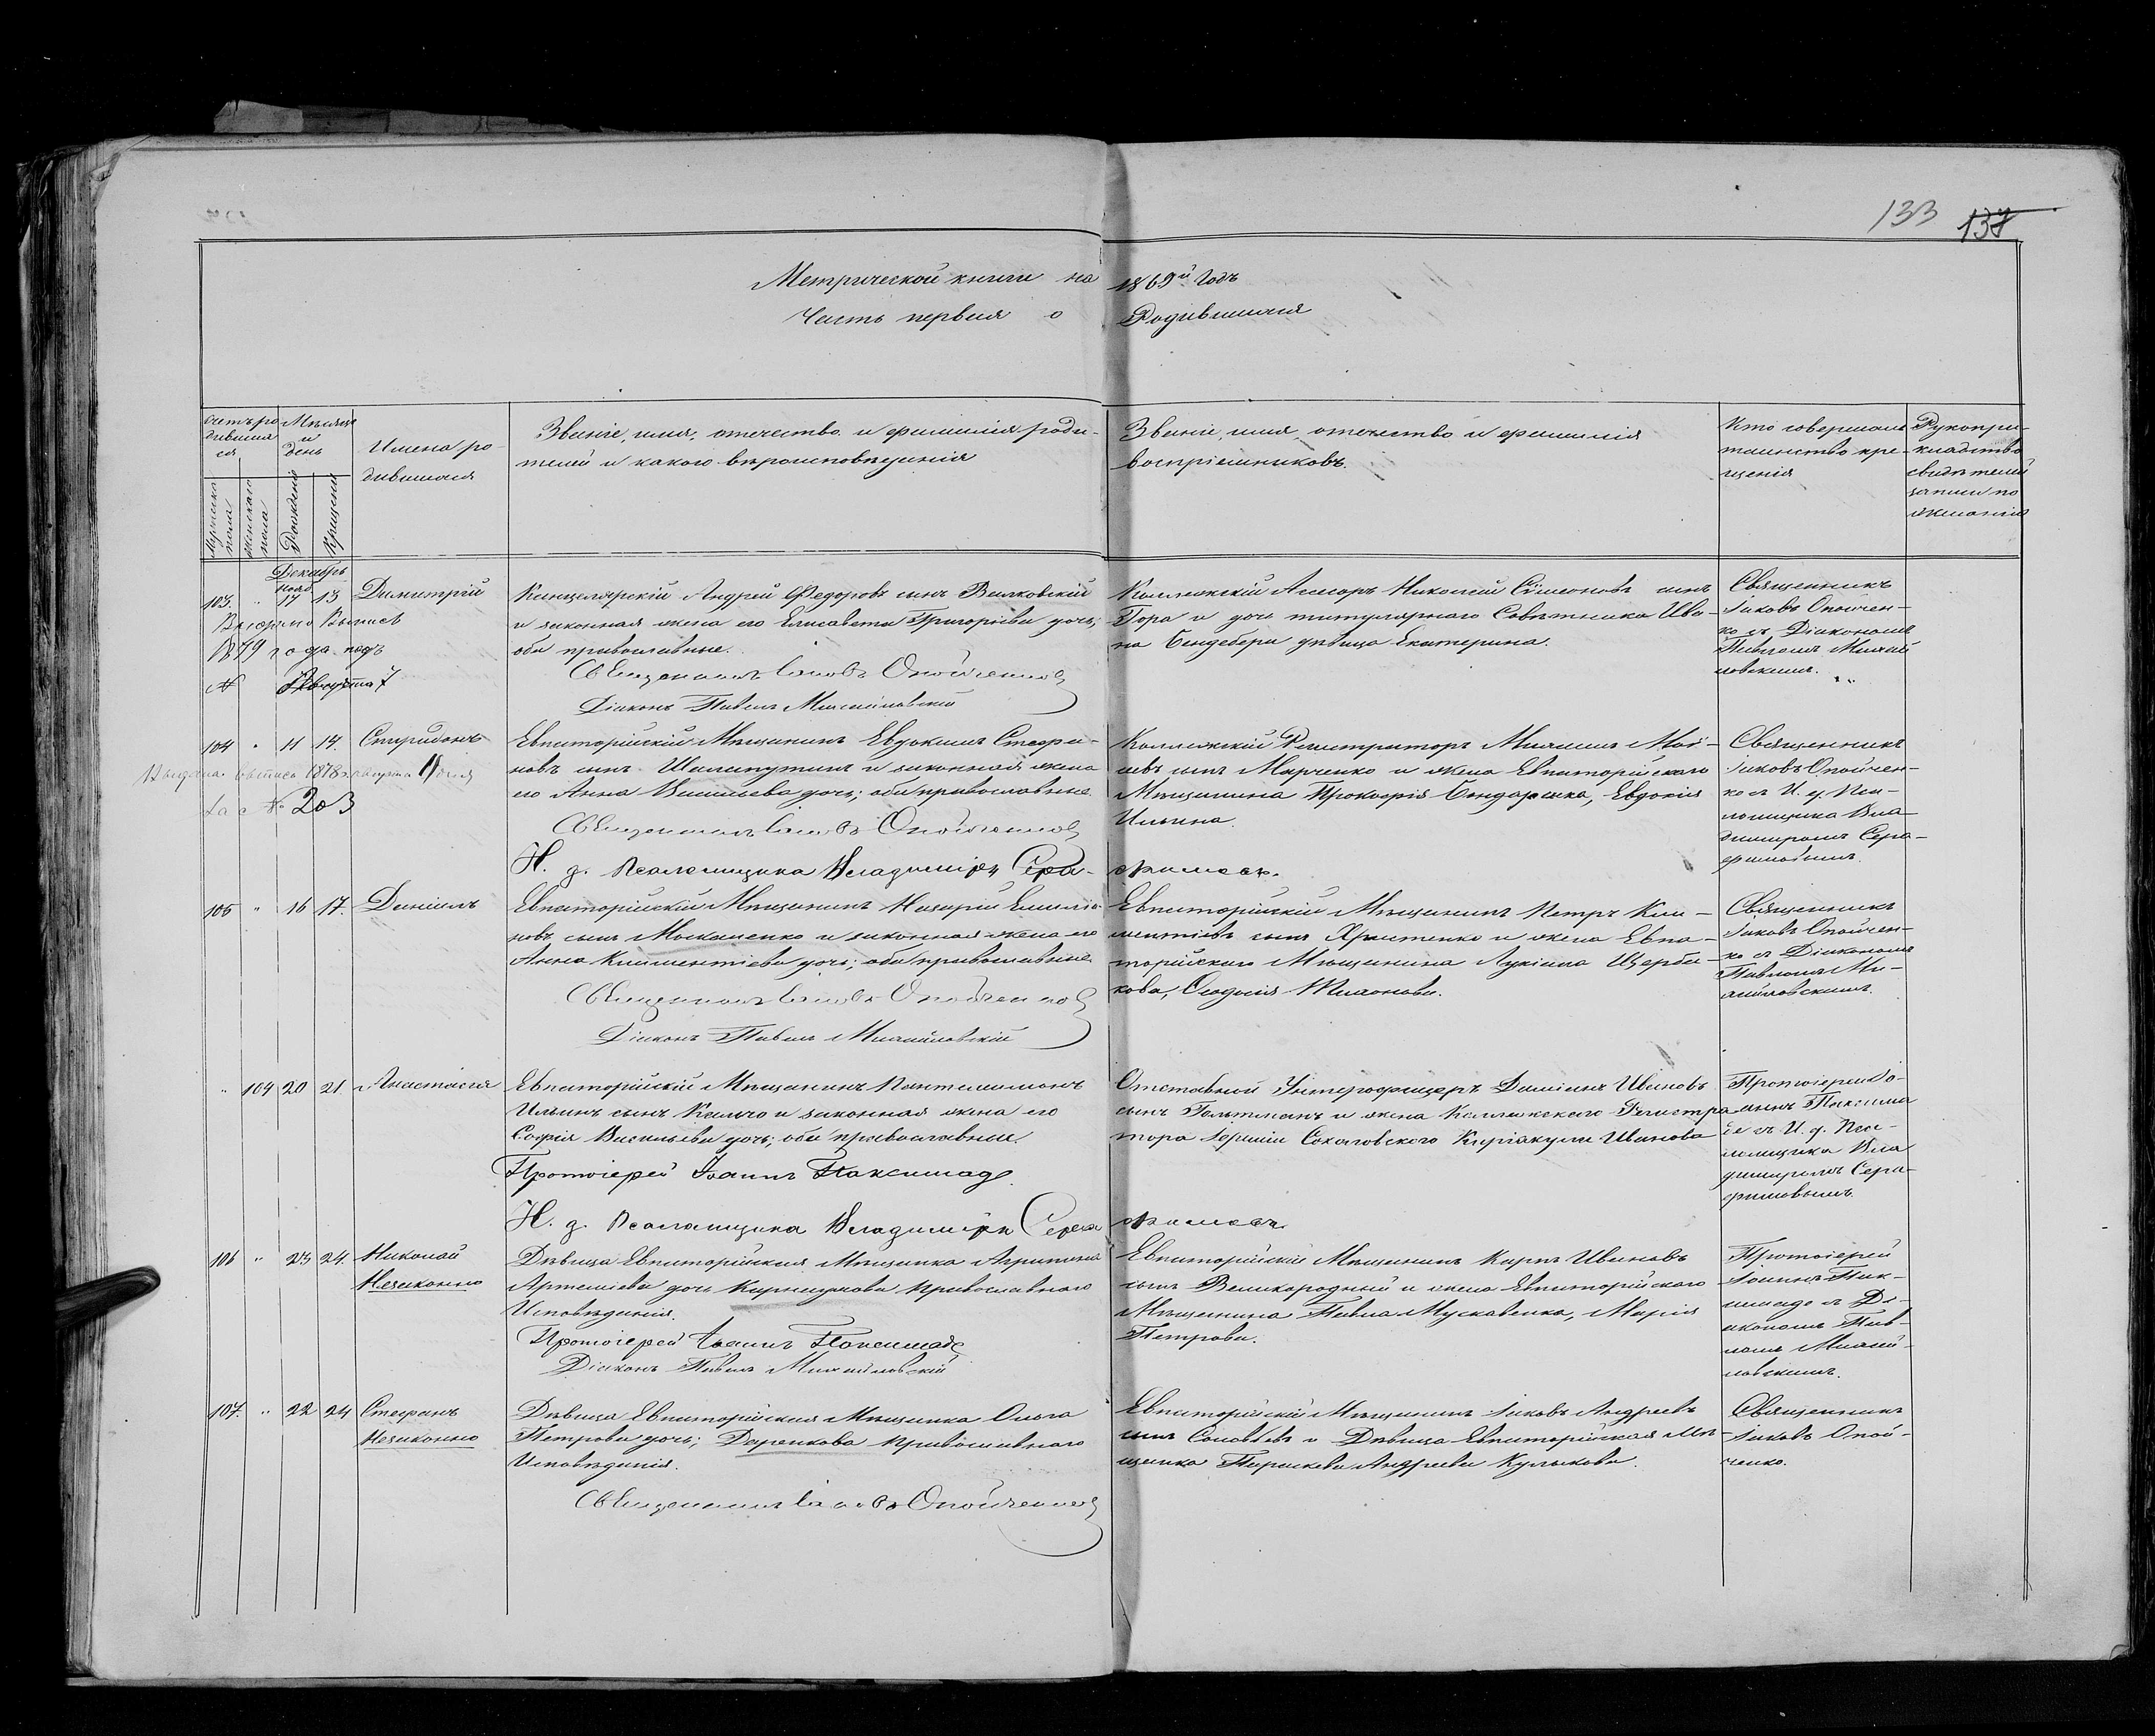 133 137
Метрической книги на 1869й Годъ
Часть первая о Родившихся
Счетъ родившихся
Мѣсяцъ и День
Имена родившихся
Званіе, имя, отчество и фамилія роди-
телей и какого вѣроисповѣданія
Званіе, имя, отчество и фамилія
воспріемниковъ.
Кто совершалъ
таинство кре-
щенія
Рукопри-
кладство
свидѣтелей
записи по
желанію
Мужска пола
Женскаго пола
Рожденія
Крещенія
Декабрь
103. " нояб. 17 13 Димитрій
1879 года подъ
№ Августа 7
Канцелярскій Андрей Федоровъ сынъ Вилковскій
и законная жена его Елисавета Григорьева дочь;
оба православные.
Священникъ Іаковъ Опойченко
Діаконъ Павелъ Михайловскій
Коллежскій Асесоръ Николай Сѵмеоновъ сынъ
Гора и дочь титулярнаго Совѣтника Ива-
на Бендебери дѣвица Екатерина.
Священникъ
Іаковъ Опойчен-
ко съ Діакономъ
Павломъ Михай
ловскимъ.
104 " 11 14. Спиридонъ
Выдана выпись 1878 г. августа
за № 203
Евпаторійскій Мѣщанинъ Евдокимъ Стефа-
новъ сынъ Шалапутинъ и законная жена
его Анна Васильева дочь; оба православные.
Священникъ Іаковъ Опойченко
И. д. Псаломщика Владиміръ Сера-
фимовъ.
Коллежскій Регистраторъ Михаилъ Мой-
сеевъ сынъ Марченко и жена Евпаторійскаго
Мѣщанина Прокофія Бондаренка, Евдокія
Ильина.
Священникъ
Іаковъ Опойчен-
ко съ И. д. Пса-
ломщика Вла-
диміромъ Сера-
фимовымъ.
105 " 16 17. Даніилъ
Евпаторійскій Мѣщанинъ Назарій Емилія-
новъ сынъ Москаленко и законная жена его
Анна Климентіева дочь; оба православные.
Священникъ Іаковъ Опойченко
Діаконъ Павелъ Михайловскій
Евпаторійскій Мѣщанинъ Петръ Кли-
ментіевъ сынъ Христенко и жена Евпа-
торійскаго Мѣщанина Лукіана Щерба-
кова, Ѳеодосія Тихонова.
Священникъ
Іаковъ Опойчен-
ко съ Діакономъ
Павломъ Ми-
хайловскимъ.
" 104 20 21. Анастасія
Евпаторійскій Мѣщанинъ Пантелимонъ
Ильинъ сынъ Калъчо и законная жена его
Софія Васильева дочь; оба православные.
Протоіерей Іоаннъ Паксимаде.
И. д. Псаломщика Владиміръ Сера
фимовъ.
Отставной Унтерофицеръ Даміянъ Ивановъ
сынъ Гольтманъ и жена Коллежскаго Регистра
тора Сокаловскаго Киріакули Иванова
Протоіерей Іо-
аннъ Паксима
де съ И. д. Пса-
ломщика Вла
диміромъ Сера-
фимовымъ.
106 " 23 24. Николай
Незаконно
Дѣвица Евпаторійская Мѣщанка Агрипина
Артеміева дочь Карнаухова Православнаго
Исповѣданія.
Протоіерей Іоаннъ Паксимаде
Діаконъ Павелъ Михайловскій
Евпаторійскій Мѣщанинъ Карпъ Ивановъ
сынъ Великородный и жена Евпаторійскаго
Мѣщанина Павла Мускавенка, Марія
Петрова.
Протоіерей
Іоаннъ Пак-
симаде съ Ді-
акономъ Пав-
ломъ Михай-
ловскимъ.
107. " 22 24 Стефанъ
Незаконно
Дѣвица Евпаторійская Мѣщанка Ольга
Петрова дочь; Даренкова Православнаго
Исповѣданія.
Священникъ Іаковъ Опойченко
Евпаторійскій Мѣщанинъ Іаковъ Андреевъ
сынъ Соловьевъ и Дѣвица Евпаторійская Мѣ-
щанка Параскева Андреева Кулыкова.
Священникъ
Іаковъ Опой-
ченко.